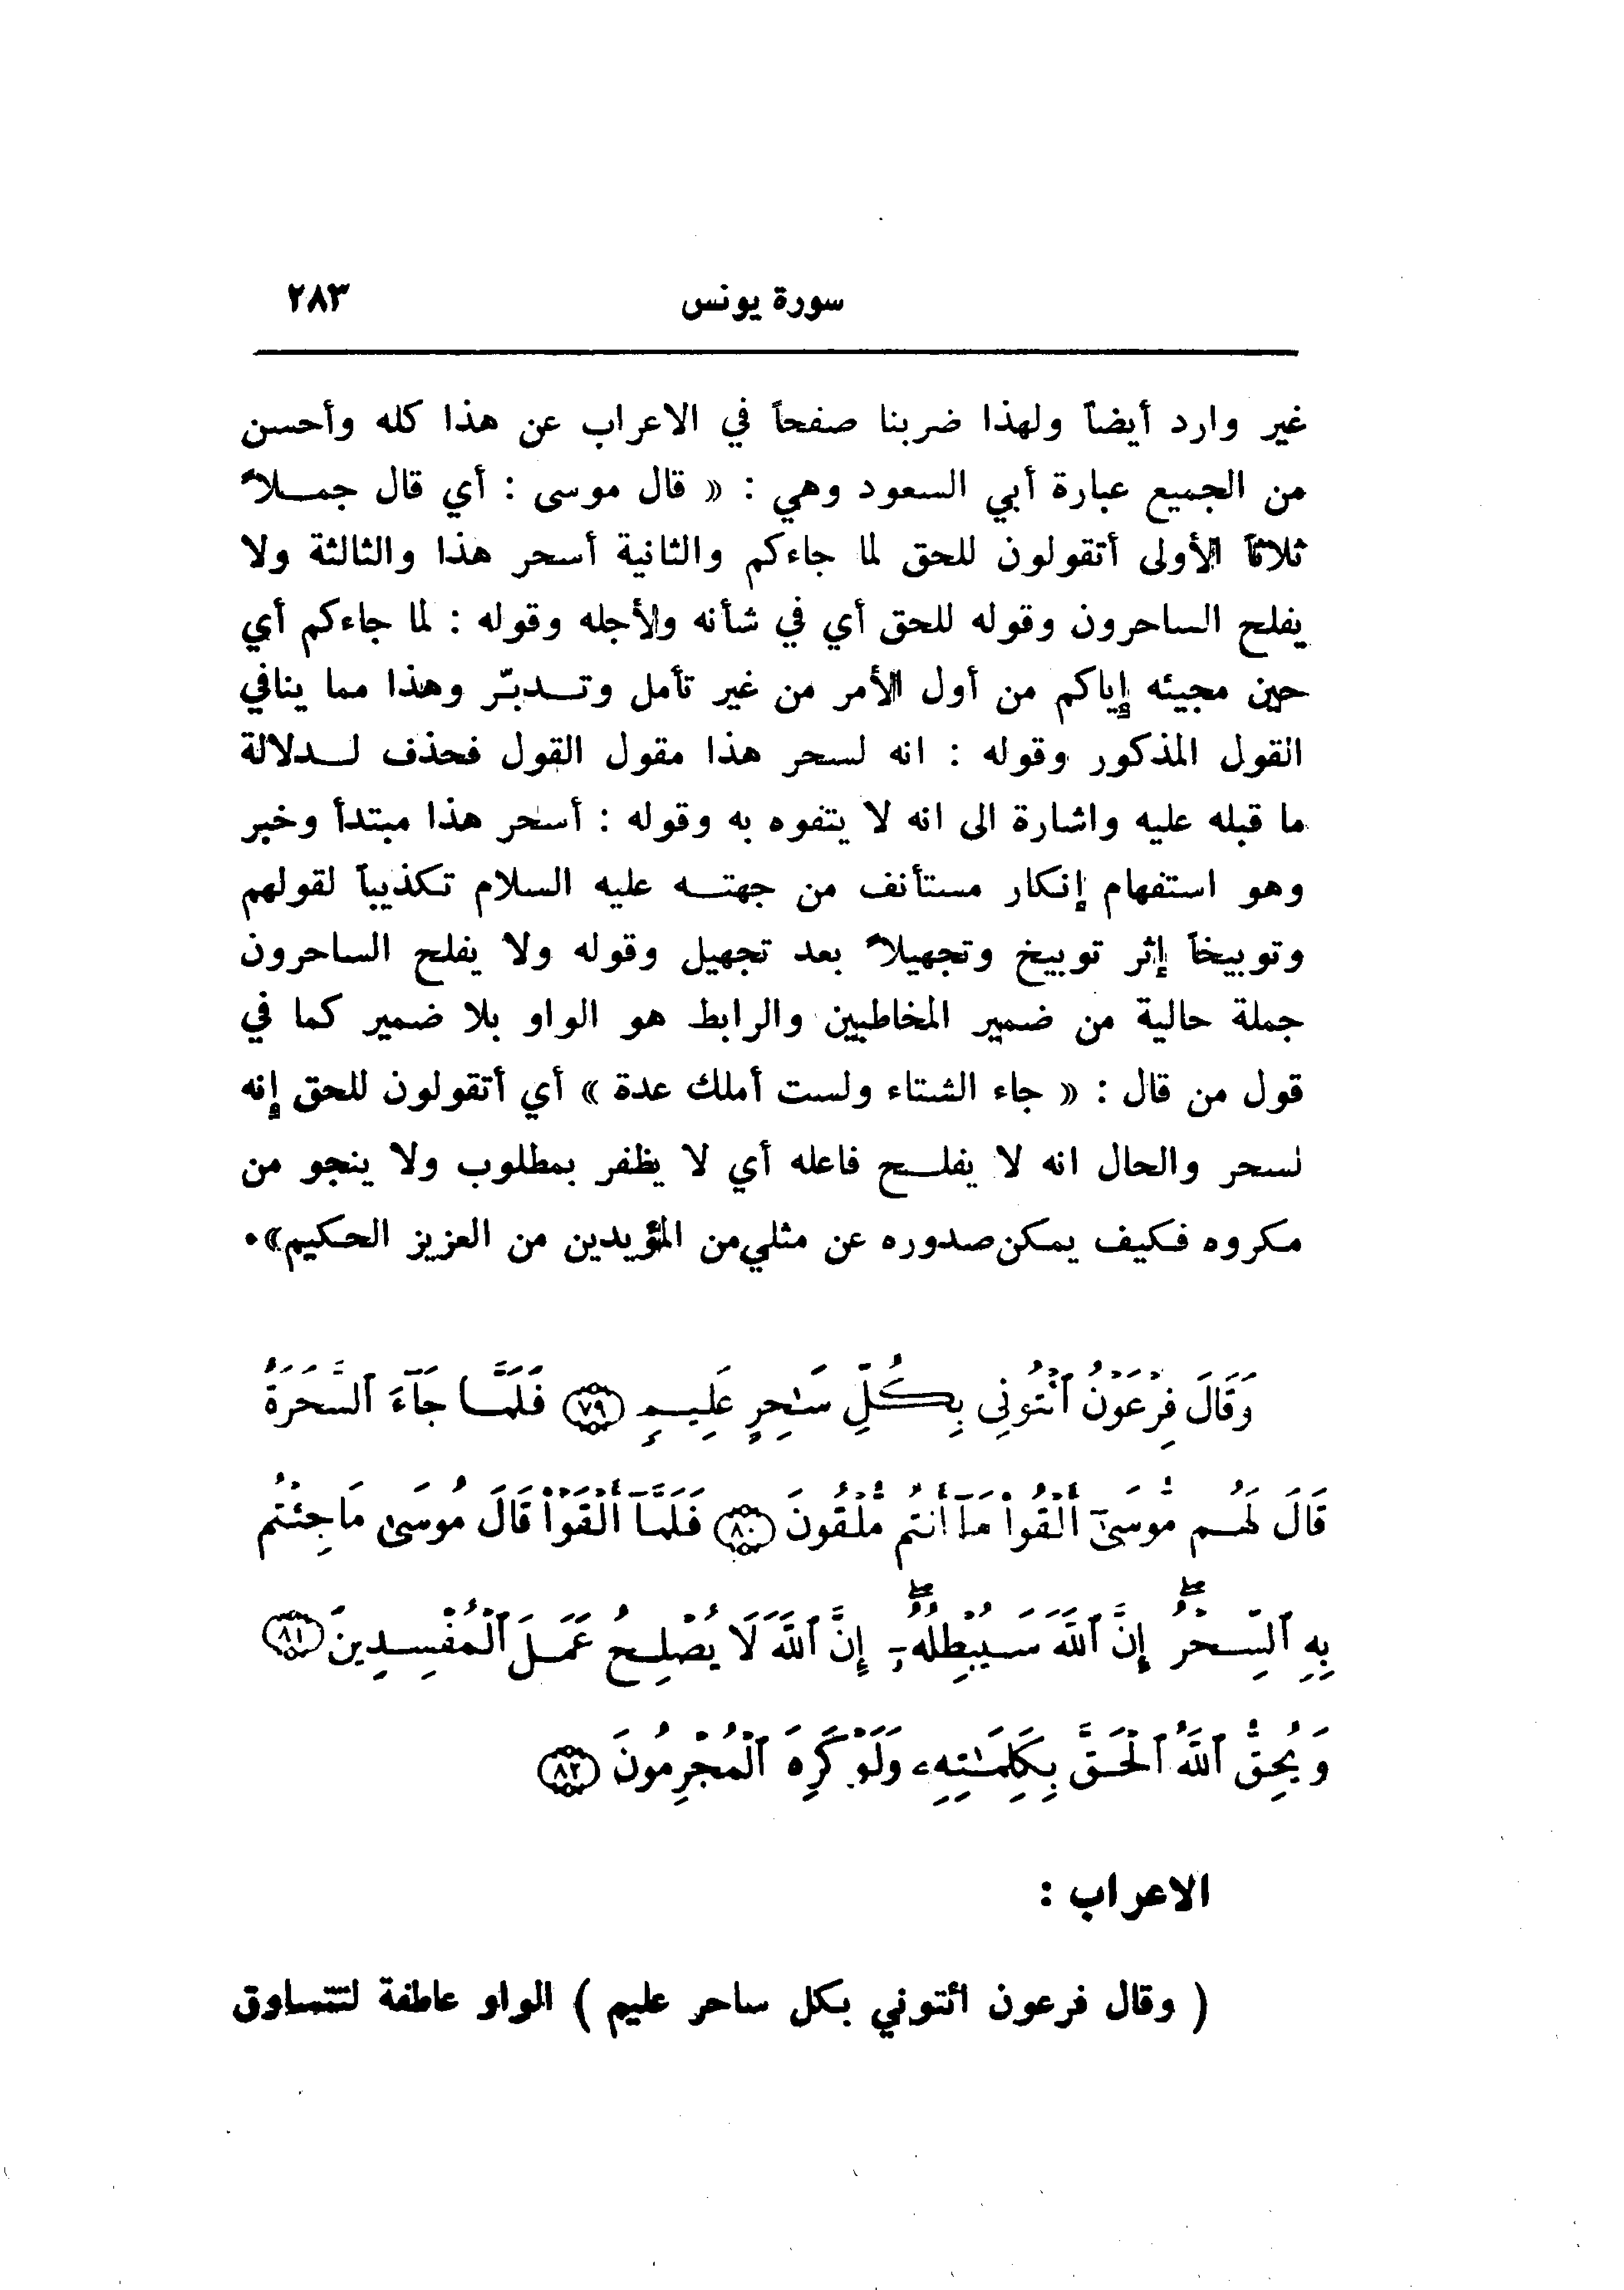 سورة يونس ٢٨٣
غير وارد أيضاً ولهذا ضربنا صفحاً في الاعراب عن هذا كله وأحسن
من الجميع عبارة أبي السعود وهي : « قال موسى : أي قال جمـلاً
ثلاثاً الأولى أتقولون للحق لما جاءكم والثانية أسحر هذا والثالثة ولا
يفلح الساحرون وقوله للحق أي في شأنه ولأجله وقوله : لما جاءكم أي
حين مجيئه إياكم من أول الأمر من غير تأمل وتـدبّر وهذا مما ينافي
القول المذكور وقوله : انه لسحر هذا مقول القول فحذف لـدلالة
ما قبله عليه واشارة الى انه لا يتفوه به وقوله : أسحر هذا مبتدأ وخبر
وهو استفهام إنكار مستأنف من جهتـه عليه السلام تكذيباً لقولهم
وتوبيخاً إثر توبيخ وتجهيلاً بعد تجهيل وقوله ولا يفلح الساحرون
جملة حالية من ضمير المخاطبين والرابط هو الواو بلا ضمير كما في
قول من قال : « جاء الشتاء ولست أملك عدة » أي أتقولون للحق إنه
لسحر والحال انه لا يفلـح فاعله أي لا يظفر بمطلوب ولا ينجو من
مكروه فكيف يمكن صدوره عن مثلي من المؤيدين من العزيز الحكيم».
وَقَالَ فِرْعَوْنُ ٱئْتُونِى بِكُلِّ سَـٰحِرٍ عَلِيمٍ ﴿٧٩﴾ فَلَمَّا جَآءَ ٱلسَّحَرَةُ
قَالَ لَهُم مُّوسَىٰٓ أَلْقُوا۟ مَآ أَنتُم مُّلْقُونَ ﴿٨٠﴾ فَلَمَّآ أَلْقَوْا۟ قَالَ مُوسَىٰ مَا جِئْتُم
بِهِ ٱلسِّحْرُ ۖ إِنَّ ٱللَّهَ سَيُبْطِلُهُۥٓ ۖ إِنَّ ٱللَّهَ لَا يُصْلِحُ عَمَلَ ٱلْمُفْسِدِينَ ﴿٨١﴾
وَيُحِقُّ ٱللَّهُ ٱلْحَقَّ بِكَلِمَـٰتِهِۦ وَلَوْ كَرِهَ ٱلْمُجْرِمُونَ ﴿٨٢﴾
الاعراب :
( وقال فرعون ائتوني بكل ساحر عليم ) الواو عاطفة لتتساوق